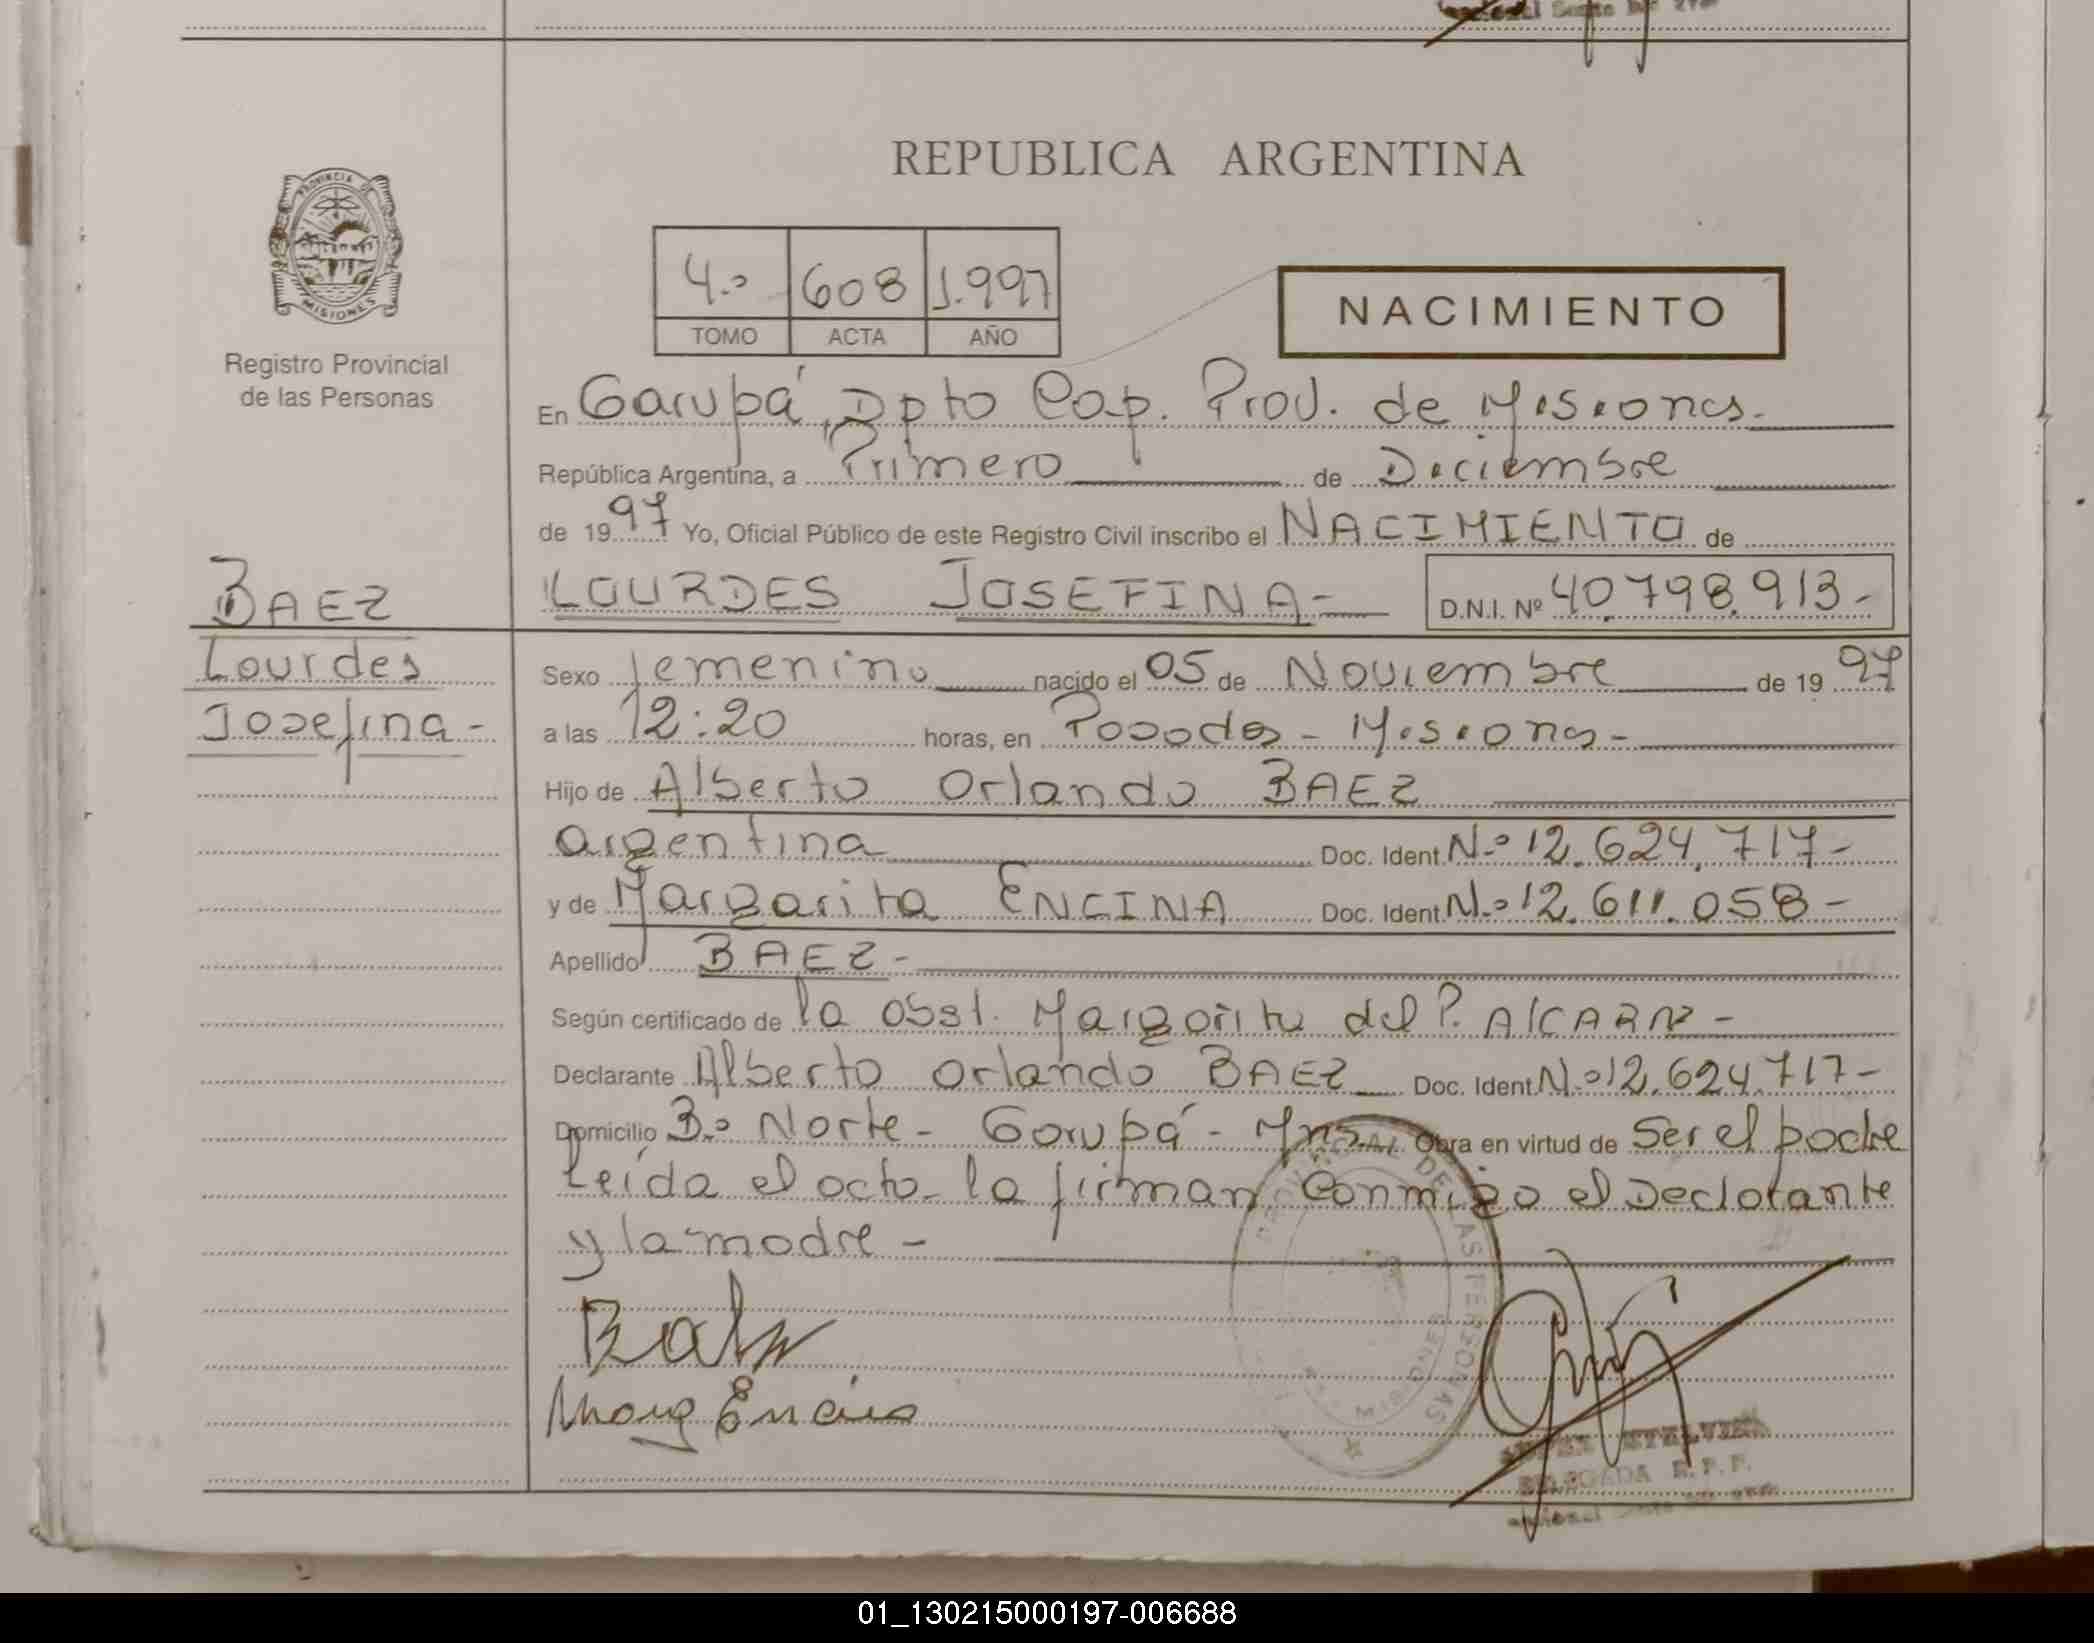 REPUBLICA ARGENTINA
PROVINCIA DE
MISIONES
Registro Provincial
de las Personas
4.º 608 1.997
TOMO ACTA AÑO
NACIMIENTO
En Garupá, Dpto Cap. Prov. de Misiones.
República Argentina, a Primero de Diciembre
de 1997 Yo, Oficial Público de este Registro Civil inscribo el NACIMIENTO de
LOURDES JOSEFINA- D.N.I. Nº 40.798.913-
BAEZ
Lourdes
Josefina-
Sexo femenino nacido el 05 de Noviembre de 1997
a las 12:20 horas, en Posadas - Misiones-
Hijo de Alberto Orlando BAEZ
argentina Doc. Ident. N.º 12.624.717-
y de Margarita ENCINA Doc. Ident. N.º 12.611.058-
Apellido BAEZ-
Según certificado de la Obst. Margarita del P.
Declarante Alberto Orlando BAEZ Doc. Ident. N.º 12.624.717-
Domicilio B.º Norte - Garupá - Mns. Obra en virtud de Ser el padre
Leída el acta la firman Conmigo el Declarante
y la madre -
PROVINCIAL DE LAS PERSONAS
MISIONES
Encina
DELEGADA R.P.P.
01_130215000197-006688